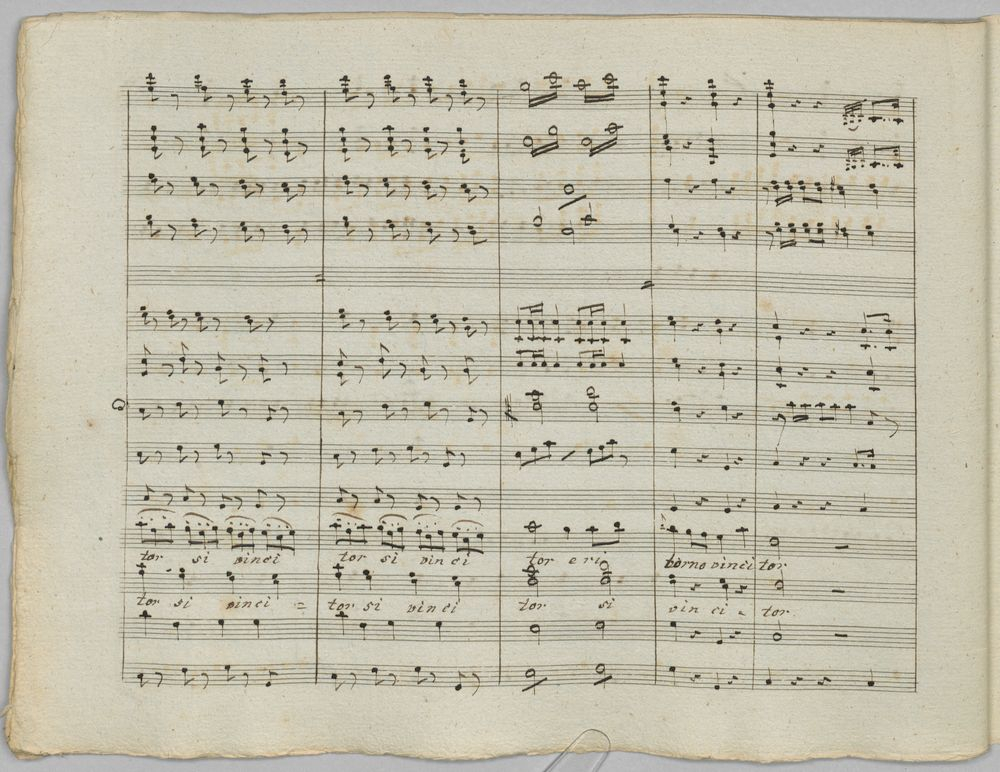 tor si vinci tor si vinci tor e ri torno vinci tor
tor si vinci = tor si vinci tor si vin ci = tor.